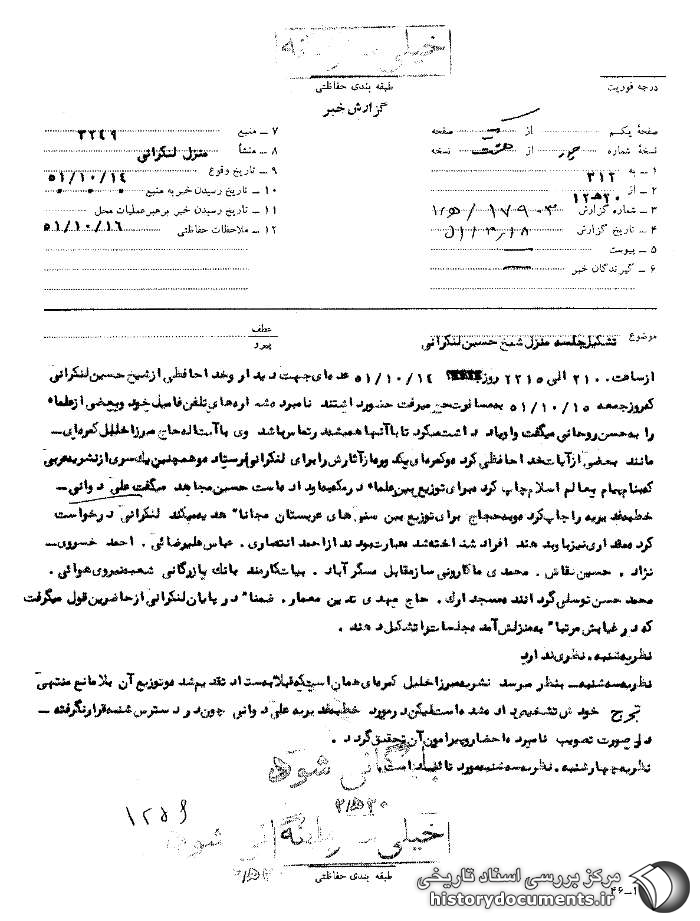 خیلی محرمانه
طبقه بندی حفاظتی
گزارش خبر
درجه فوریت
صفحهٔ یکم از صفحه
نسخهٔ شماره از هشت نسخه
۱ ــ به ۳۱۲
۲ ــ از ۲۰ه۱۲
۳ ــ شماره گزارش
۴ ــ تاریخ گزارش
۵ ــ پیوست
۶ ــ گیرندگان خبر
۷ ــ منبع ۳۲۴۹
۸ ــ منشأ منزل لنکرانی
۹ ــ تاریخ وقوع ۵۱/۱۰/۱۴
۱۰ ــ تاریخ رسیدن خبر به منبع
۱۱ ــ تاریخ رسیدن خبر برهبر عملیات محل
۱۲ ــ ملاحظات حفاظتی ۵۱/۱۰/۱۶
عطف
پیرو
موضوع تشکیل جلسه منزل شیخ حسین لنکرانی
از ساعت ۲۱۰۰ الی ۲۲۱۵ روز ۵۱/۱۰/۱۴ عده‌ای جهت دیدار و خداحافظی از شیخ حسین لنکرانی
که روز جمعه ۵۱/۱۰/۱۵ به مسافرت حج میرفت حضور داشتند نامبرده شماره‌های تلفن فامیل خود و بعضی از علماء
را به حسن روحانی میگفت و او یادداشت میکرد تا با آنها همیشه در تماس باشد وی با آیت‌اله حاج میرزا خلیل کمره‌ای ــ
مانند بعضی از آیات خداحافظی کرد و کمره‌ای یک دوره از آثارش را برای لنکرانی فرستاد و همچنین یک سری از نشریه عربی
که بنام پیام بعالم اسلام چاپ کرده برای توزیع بین علماء در مکه باو داده است حسین مجاهد میگفت علی دوانی ــ
خطبه غدیریه را چاپ کرده و به حجاج برای توزیع بین سنی‌های عربستان مجاناً هدیه میکند لنکرانی درخواست
کرد مقداری نیز باو بدهند افراد شناخته‌شده عبارت بودند از احمد انصاری . عباس علیرضائی . احمد خسروی ــ
نژاد . حسین نقاش . محمدی ماکارونی ساز مقابل مسگرآباد . بیات کارمند بانک بازرگانی شعبه نیروی هوائی .
محمد حسن توسلی گرداننده مسجد ارک . حاج مهدی تدین معمار . ضمناً در پایان لنکرانی از حاضرین قول میگرفت
که در غیابش مرتباً به منزلش آمده جلسات را تشکیل دهند .
نظریه شنبه . نظری ندارد
نظریه سه‌شنبه ــ بنظر میرسد نشریه میرزا خلیل کمره‌ای همان است که قبلا بدست آمده تقدیم شد و توزیع آن بلامانع منتهی
خودش تشخیص داده شده است لیکن در مورد خطبه غدیریه علی دوانی چون در دسترس شنبه قرار نگرفته ــ
در صورت تصویب نامبرده احضار و پیرامون آن تحقیق گردد .
نظریه چهارشنبه . نظریه سه‌شنبه مورد تائید است .
بایگانی شود
۱۲۵۶
خیلی محرمانه
طبقه بندی حفاظتی
۱ــ۴۶
مرکز بررسی اسناد تاریخی
historydocuments.ir